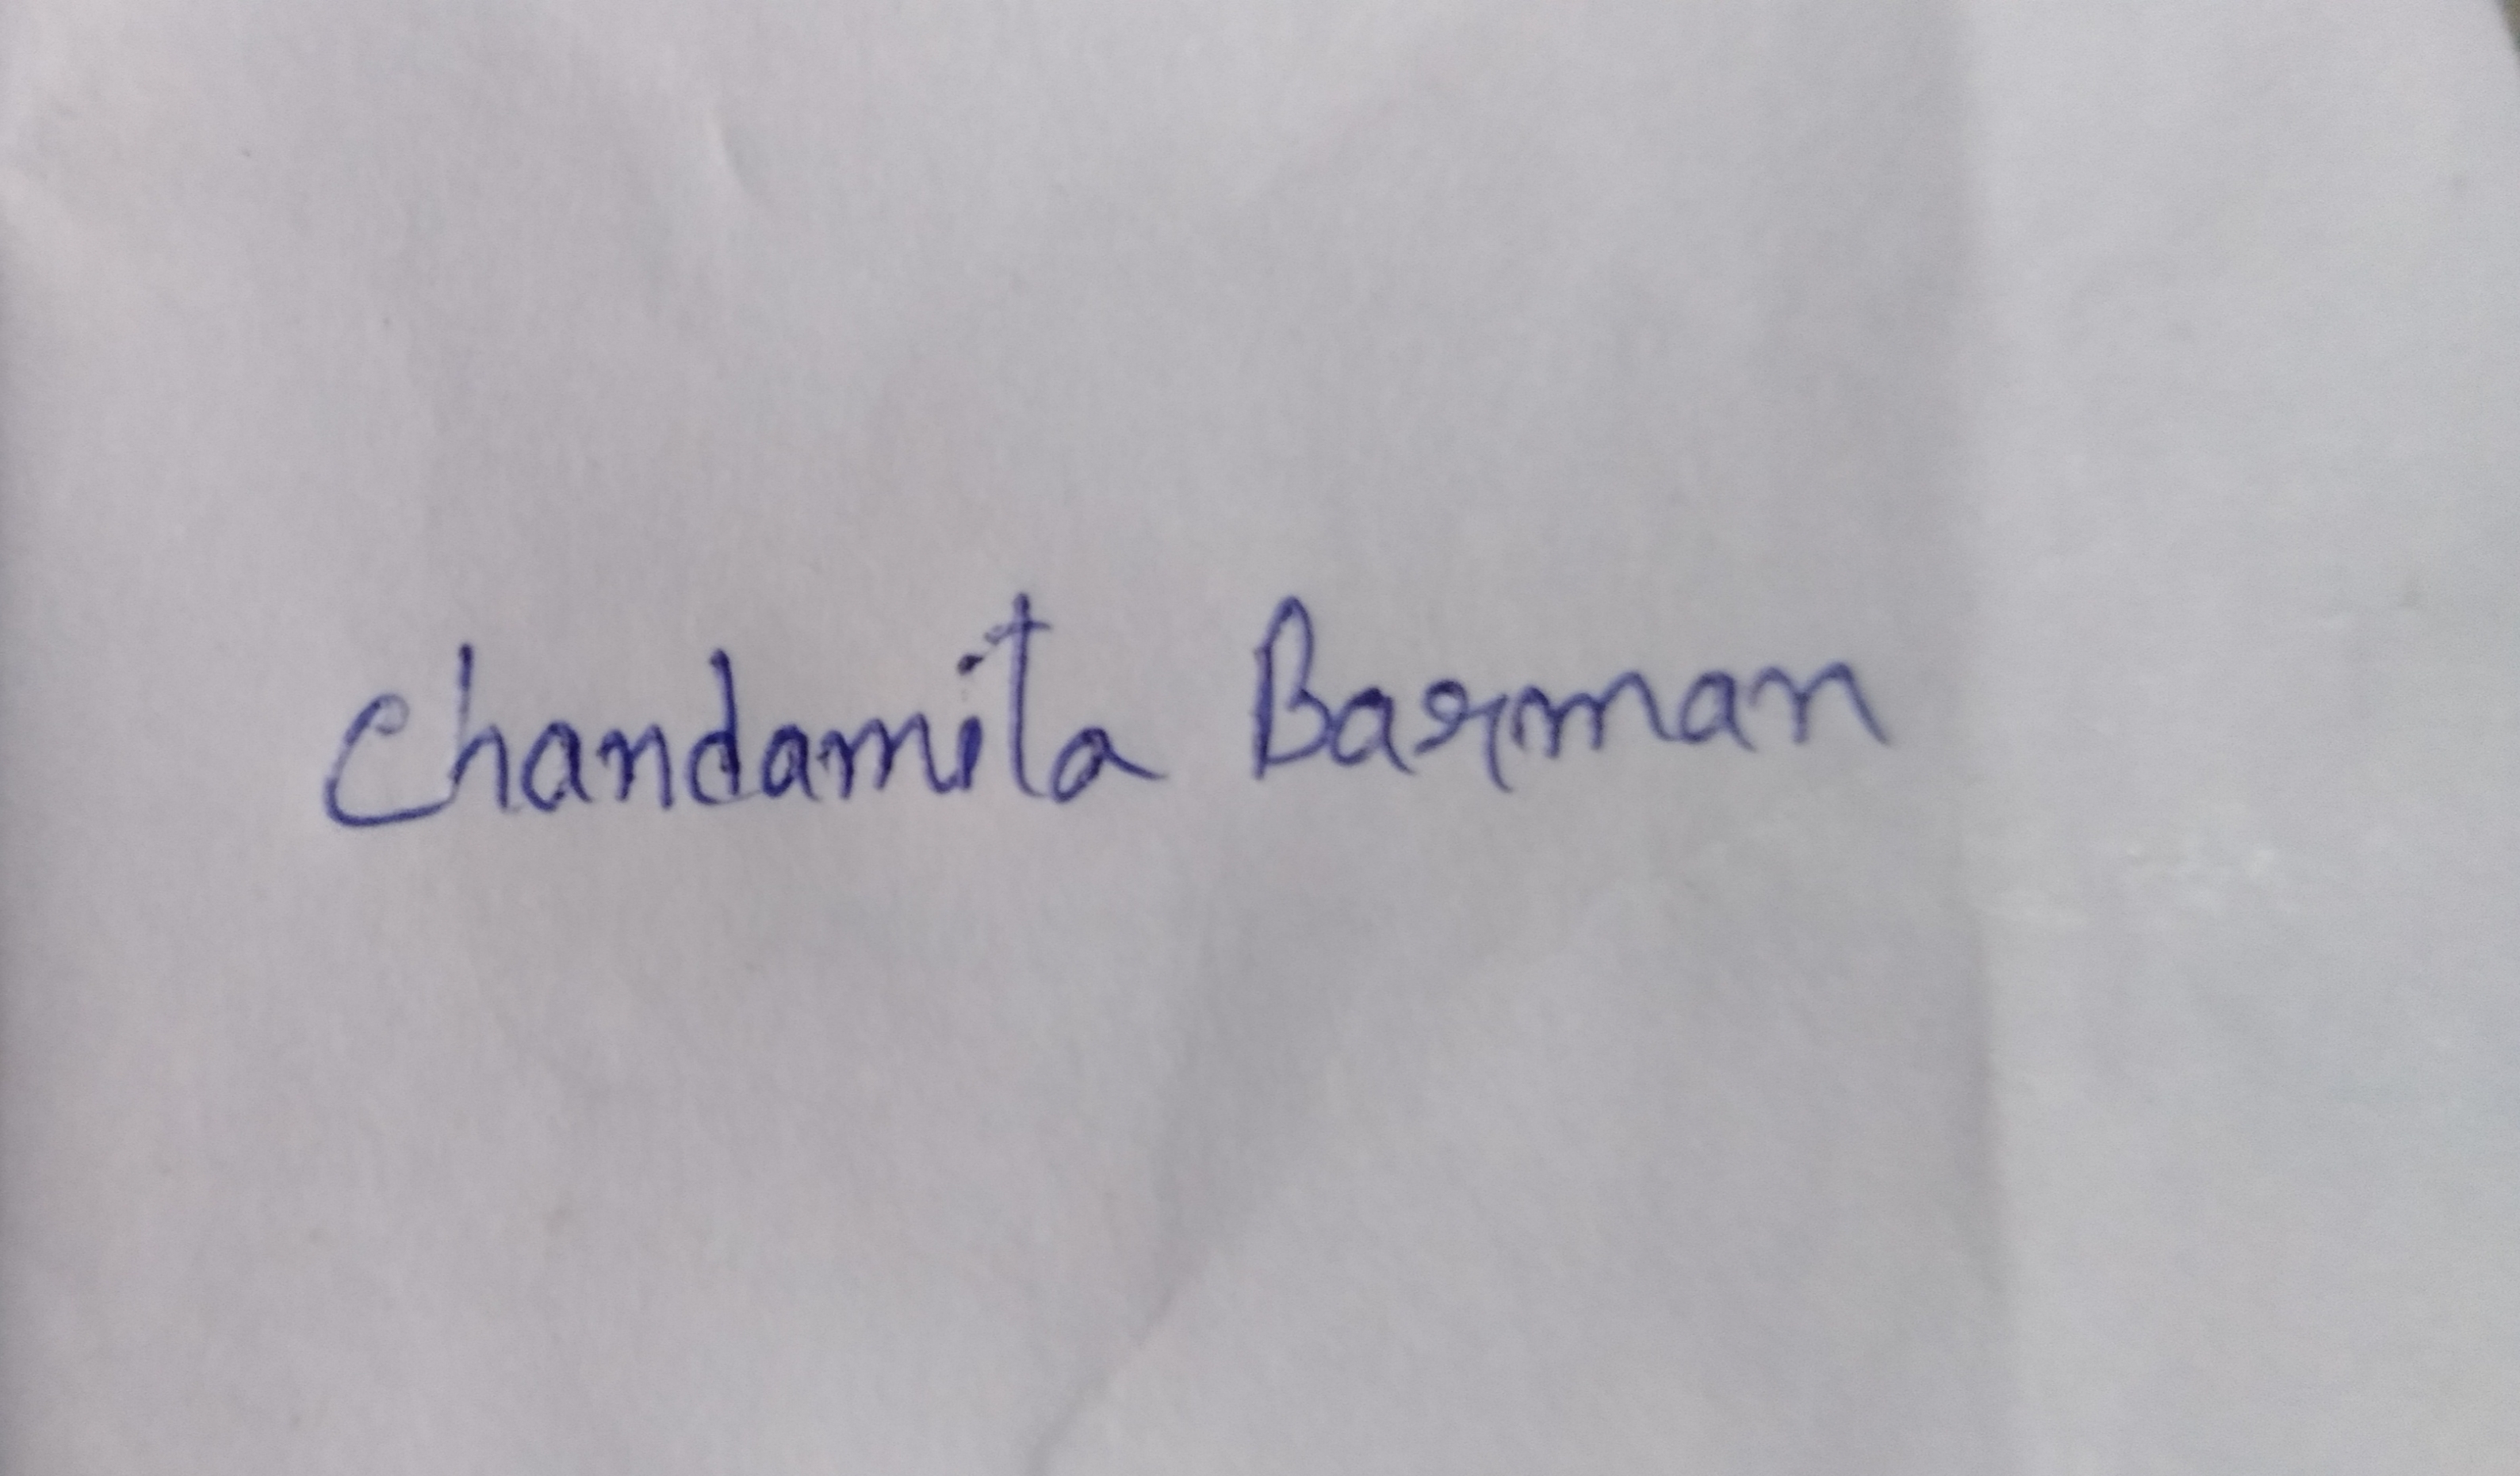 Chandamita Barman